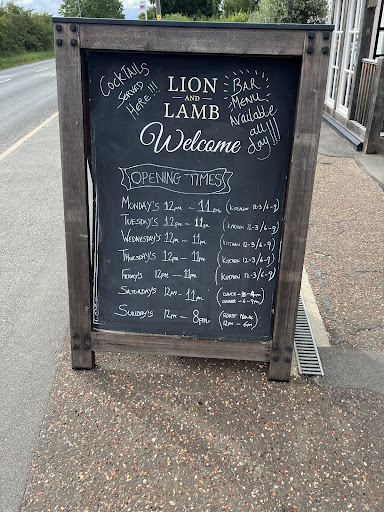 Cocktails
Served
Here !!!
LION
AND
LAMB
BAR
MENU
Available
all
day!!!
Welcome
OPENING TIMES
MONDAY'S 12pm - 11pm (KITCHEN 12-3/6-9)
TUESDAY'S 12pm - 11pm (KITCHEN 12-3/6-9)
WEDNESDAY'S 12pm - 11pm (KITCHEN 12-3/6-9)
THURSDAY'S 12pm - 11pm (KITCHEN 12-3/6-9)
FRIDAY'S 12pm - 11pm (KITCHEN 12-3/6-9)
SATURDAY'S 12pm - 11pm
DINNER - 6-9pm
SUNDAY'S 12pm - 8pm (ROAST MENU
12pm - 6pm)